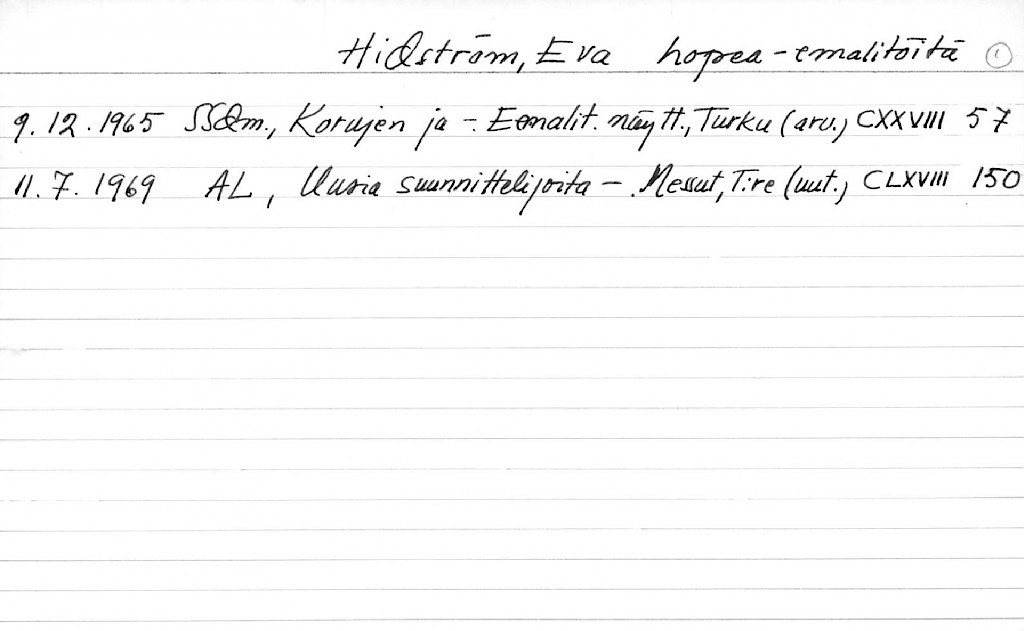 Hidström, Eva hopea-emalitöitä 1
9.12.1965 SSdm., Korujen ja - Emalit. näytt., Turku (arv.) CXXVIII 57
11.7.1969 AL, Uusia suunnittelijoita - Messut, T:re (uut.) CLXVIII 150